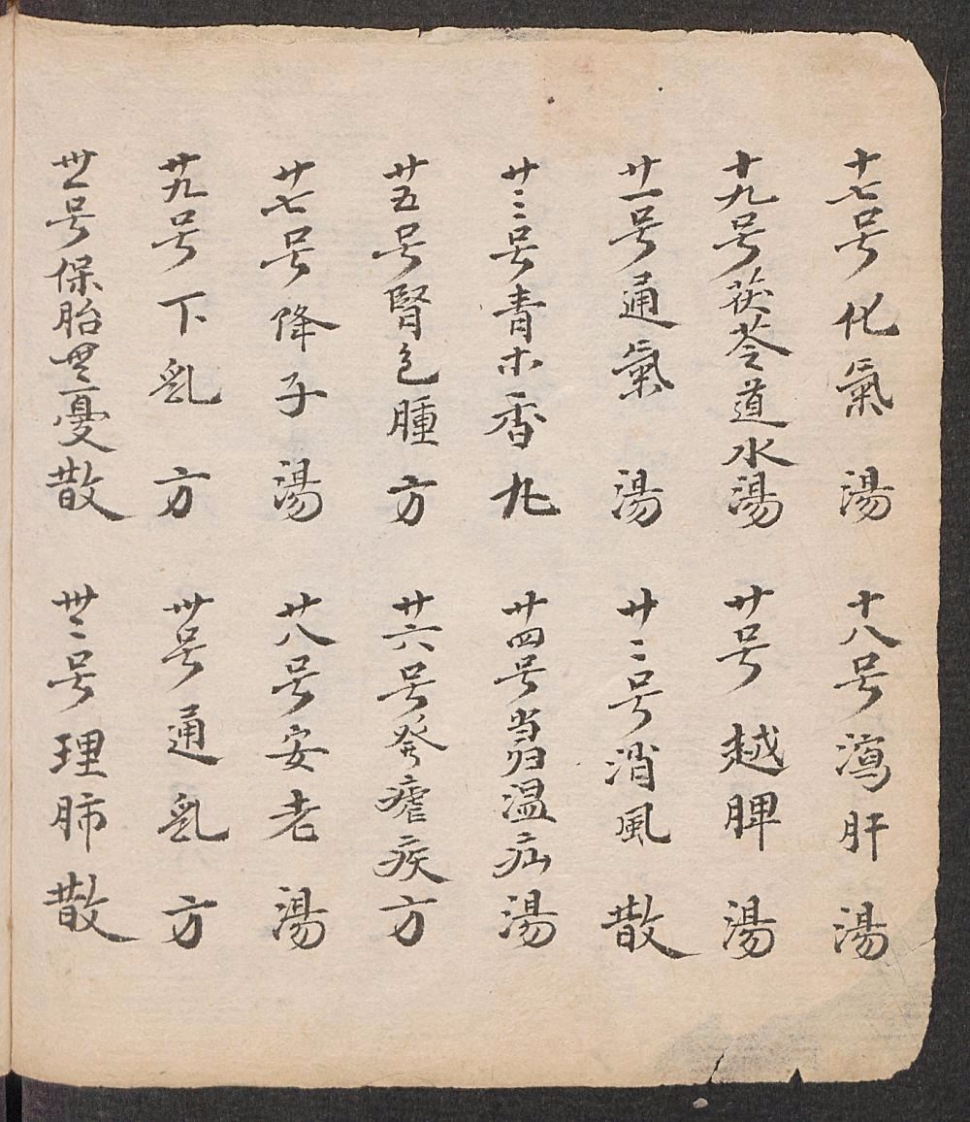 十七号化氣湯　十八号瀉肝湯
十九号茯苓道水湯　廿号越脾湯
廿一号通氣湯　廿二号消風散
廿三号青木香丸　廿四号当归温疝湯
廿五号腎包腫方　廿六号発瘧疾方
廿七号降子湯　廿八号安老湯
廿九号下乳方　卅号通乳方
卅一号保胎無憂散　卅二号理肺散